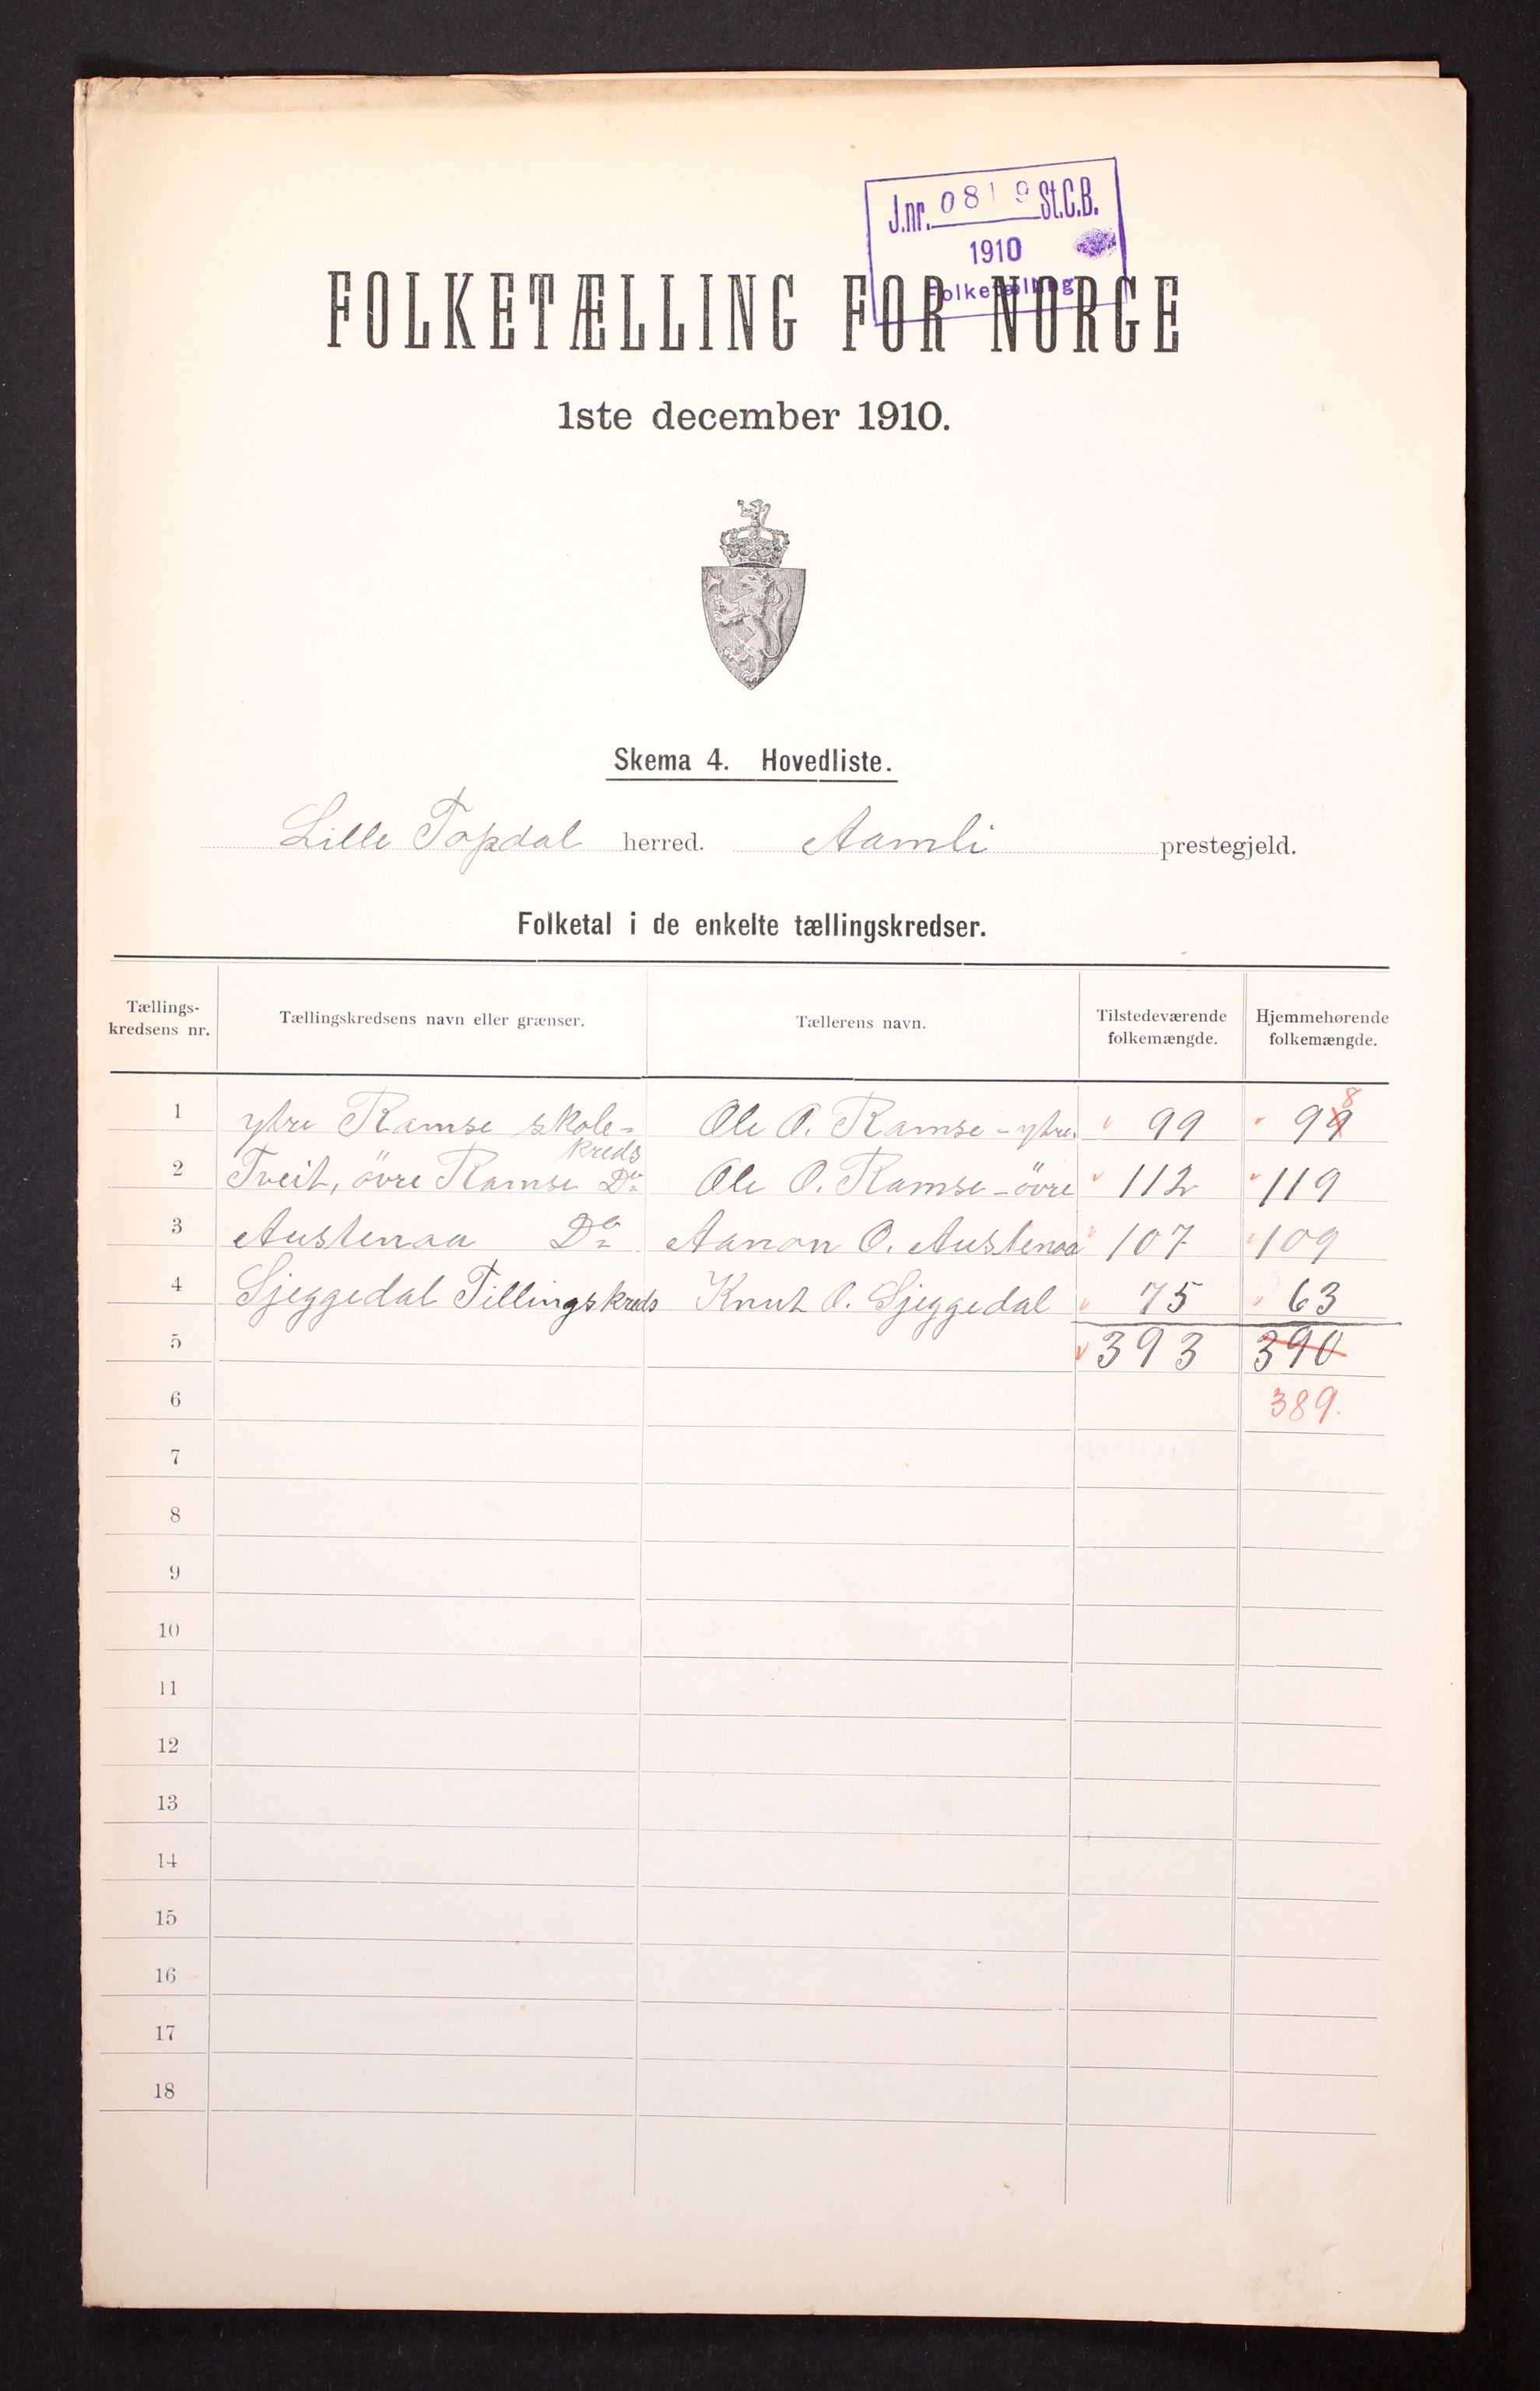 J.nr. 0819 St.C.B.
1910
Folketælling
FOLKETÆLLING FOR NORGE
1ste december 1910.
Skema 4. Hovedliste.
Lille Topdal herred. Aamli prestegjeld.
Folketal i de enkelte tællingskredser.
Tællings-kredsens nr. Tællingskredsens navn eller grænser. Tællerens navn. Tilstedeværende folkemængde. Hjemmehørende folkemængde.
1 ytre Ramse skole= kreds Ole O. Ramse - ytre. 99 99 8
2 Tveit, övre Ramse Do Ole O. Ramse - övre 112 119
3 Austenaa Do Aanon O. Austenaa 107 109
4 Sjeggedal Tillingskreds Knut O. Sjeggedal 75 63
5 393 390
6 389.
7
8
9
10
11
12
13
14
15
16
17
18